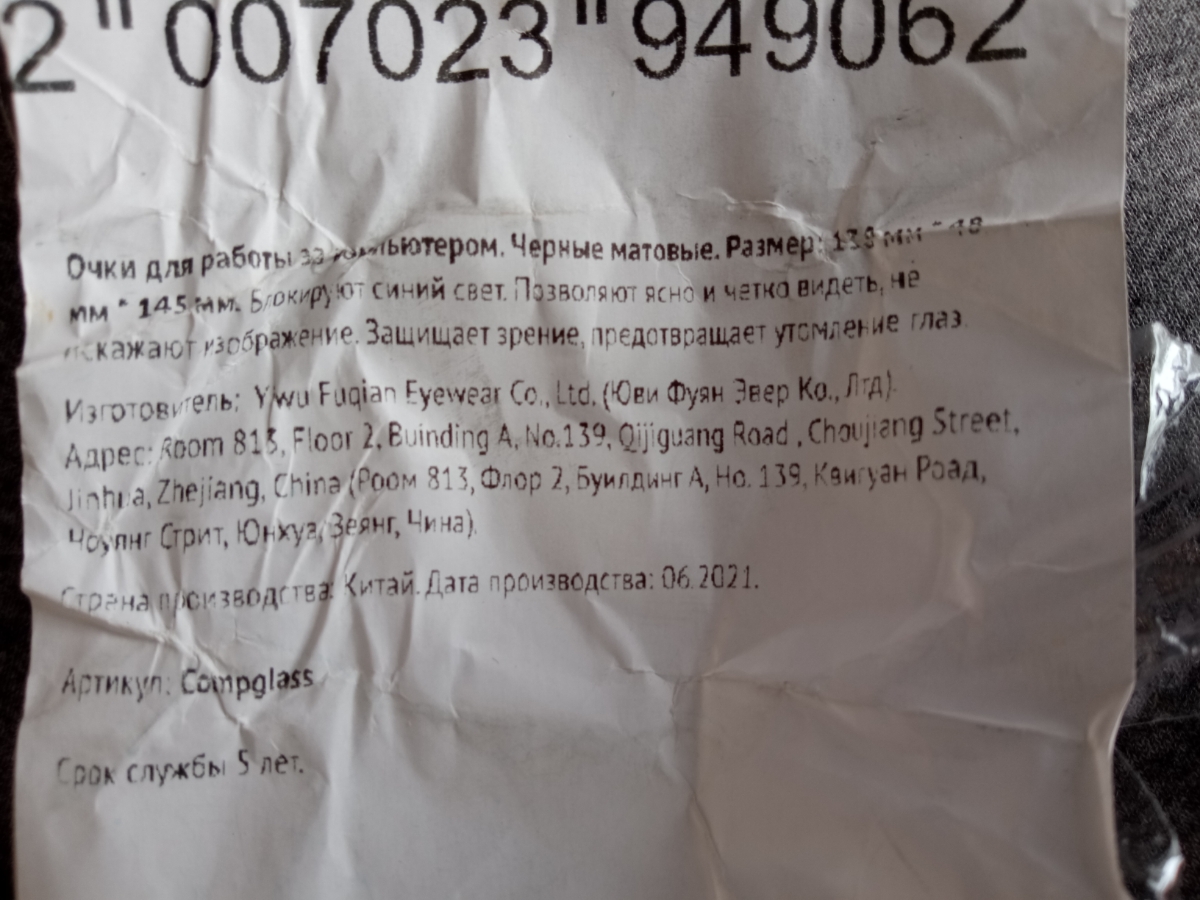 2"007023"949062
Очки для работы за компьютером. Черные матовые. Размер: 139 мм * 48
мм * 145 мм. Блокируют синий свет. Позволяют ясно и четко видеть, не
искажают изображение. Защищает зрение, предотвращает утомление глаз.
Изготовитель: Yiwu Fuqian Eyewear Co., Ltd. (Юви Фуян Эвер Ко., Лтд).
Адрес: Room 813, Floor 2, Buinding A, No.139, Qijiguang Road , Choujiang Street,
Jinhua, Zhejiang, China (Роом 813, Флор 2, Буилдинг А, Но. 139, Квигуан Роад,
Стрит, Юнхуа, Зеянг, Чина).
Страна производства: Китай. Дата производства: 06.2021.
Артикул: Compglass
Срок службы 5 лет.